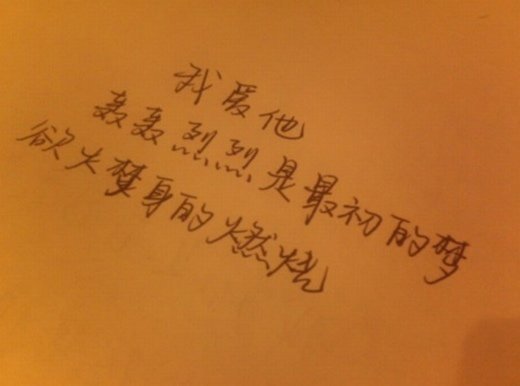 我爱他
轰轰烈烈是最初的梦
欲火焚身的燃烧